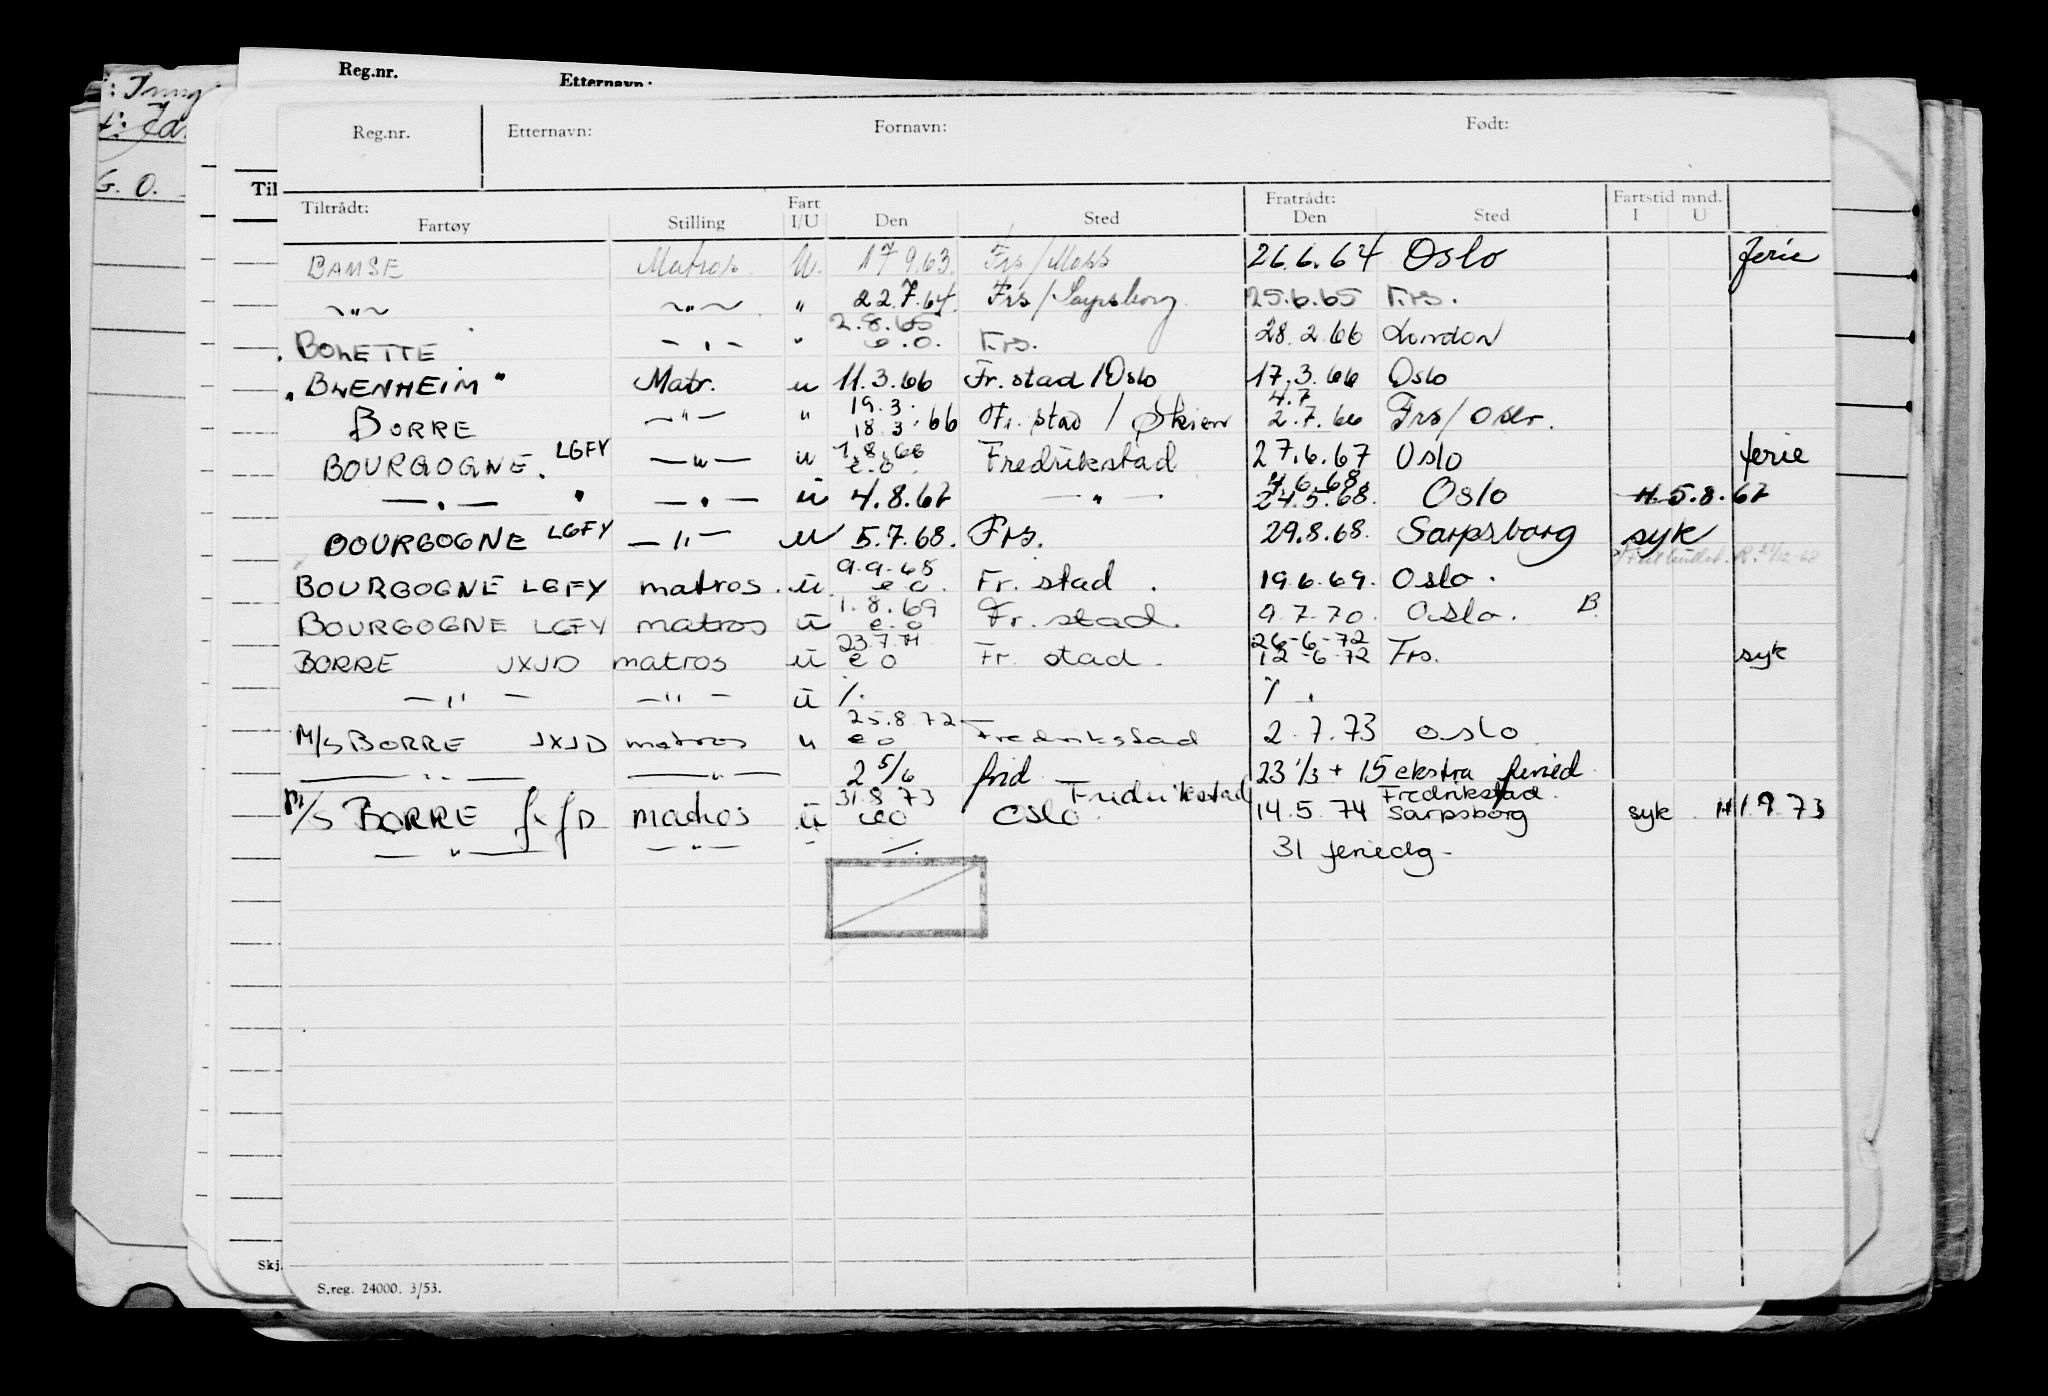 Reg.nr. Etternavn:
G. O.
Til
Reg.nr. Etternavn: Fornavn: Født:
Tiltrådt: Fart Fratrådt: Fartstid mnd.
Fartøy Stilling I/U Den Sted Den Sted I U
BAMSE Matros U. 17 9.63. Frs/Moss 26.6.64 Oslo ferie
~"~ ~"~ " 22.7.64. Frs/Sarpsborg 25.6.65 Frs.
2.8.65
BOLETTE — " — " e.o. Frs. 28.2.66 London
"BLENHEIM" Matr. u 11.3.66 Fr.stad/Oslo 17.3.66 Oslo
19.3. 4.7
BORRE — " — " 18.3.66 Fr.stad / Skien 2.7.66 Frs/Oslo.
1.8.66
BOURGOGNE. LGFY — " — u e.o. Fredrikstad 27.6.67 Oslo ferie
4.6.68.
— " — " — " — u 4.8.67 — " — 24.5.68. Oslo H.5.8.67
BOURGOGNE LGFY — " — u 5.7.68. Frs. 29.8.68. Sarpsborg syk
9.9.68
BOURGOGNE LGFY matros. u. e o. Fr. stad. 19.6.69. Oslo.
1.8.69
BOURGOGNE LGFY matros u e.o Fr. stad. 9.7.70. Oslo. B.
23.7.71 26-6-72
BORRE JXJD matros u e o Fr. stad. 12-6-72 Frs. syk
— " — — " — u %. %.
25.8.72
M/S BORRE JXJD matros u e o Fredrikstad 2.7.73 Oslo
— " — — " — 25/6 frid 23 1/3 + 15 ekstra feried.
31.8.73 Fredrikstad Fredrikstad.
M/S BORRE JXJD matros u eo Oslo. 14.5.74 Sarpsborg syk H 1.9.73
— " — — " — " %. 31 feriedg-
Skj.
S.reg. 24000. 3/53.